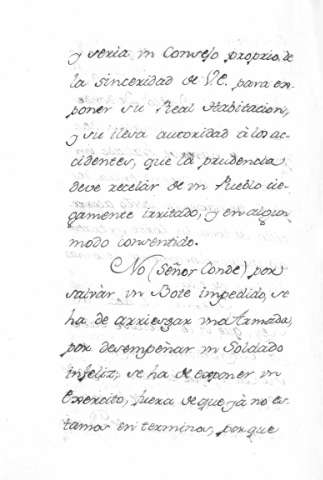 y seria un Consejo proprio de
la sinceridad de V.E. para ex-
poner su Real Habitacion,
y su ilesa autoridad à los ac-
cidentes, que la prudencia
deve recelar de un Pueblo cie-
gamente irritado, y en algun
modo consentido.
No (Señor Conde) por
salvar un Bote impedido, se
ha de arriesgar una Armada,
por desempeñar un Soldado
infeliz, se ha de exponer un
Exercito, fuera de que jà no es-
tamos en terminos, porque